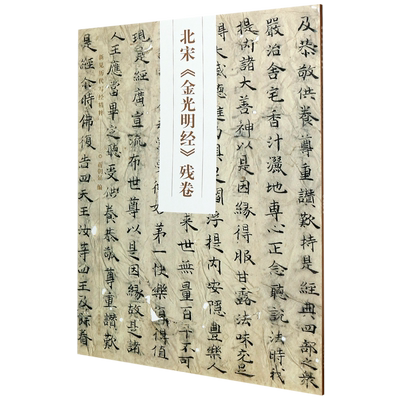 北宋《金光明经》残卷
及恭敬供養尊重讚歎持是經典四部之眾
嚴治舍宅香汁灑地專心正念聽說法時我
諸大善神以是因緣得服甘露法味充足
威德
閻浮提內安隱豐樂人
來世無量百千不可
第一快樂
是經典廣宣流布世尊以是因緣故是諸
人王應當畢之受化恭敬尊重讚歎
是經尒時佛告四天王汝等四王及餘眷